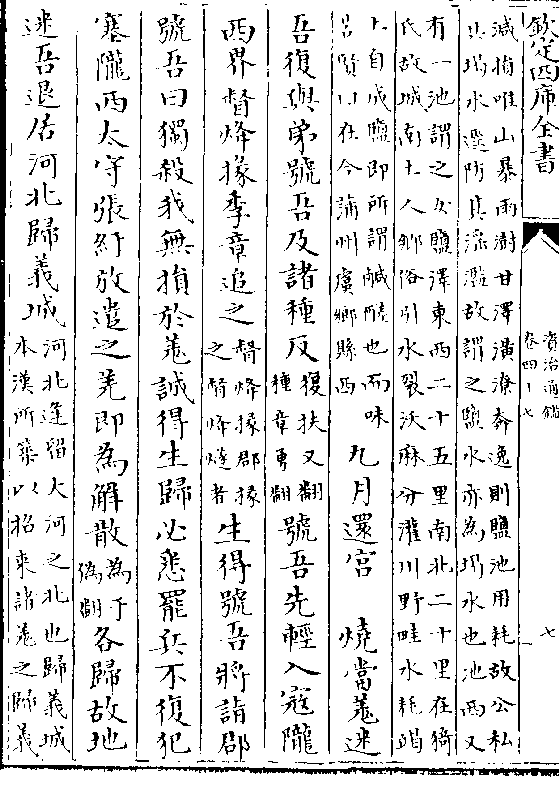 欽定四庫全書
資治通鑑
卷四十七
七
減損唯山暴雨澍甘澤潢潦奔逸則鹽池用耗故公私
共堨水逕防其淫濫故謂之鹽水亦為堨水也池西又
有一池謂之女鹽澤東西二十五里南北二十里在猗
氏故城南土人鄉俗引水裂沃麻分灌川野畦水耗竭
土自成鹽即所謂鹹鹺也而味
苦賢曰在今蒲州虞鄉縣西
九月還宮　燒當羌迷
吾復與弟號吾及諸種反
復扶又翻
種章勇翻
號吾先輕入寇隴
西界督烽掾李章追之
督烽掾郡掾
之督烽燧者
生得號吾將詣郡
號吾曰獨殺我無損於羌誠得生歸必悉罷兵不復犯
塞隴西太守張紆放遣之羌即為解散
為于
偽翻
各歸故地
迷吾退居河北歸義城
河北逢留大河之北也歸義城
本漢所築以招來諸羌之歸義